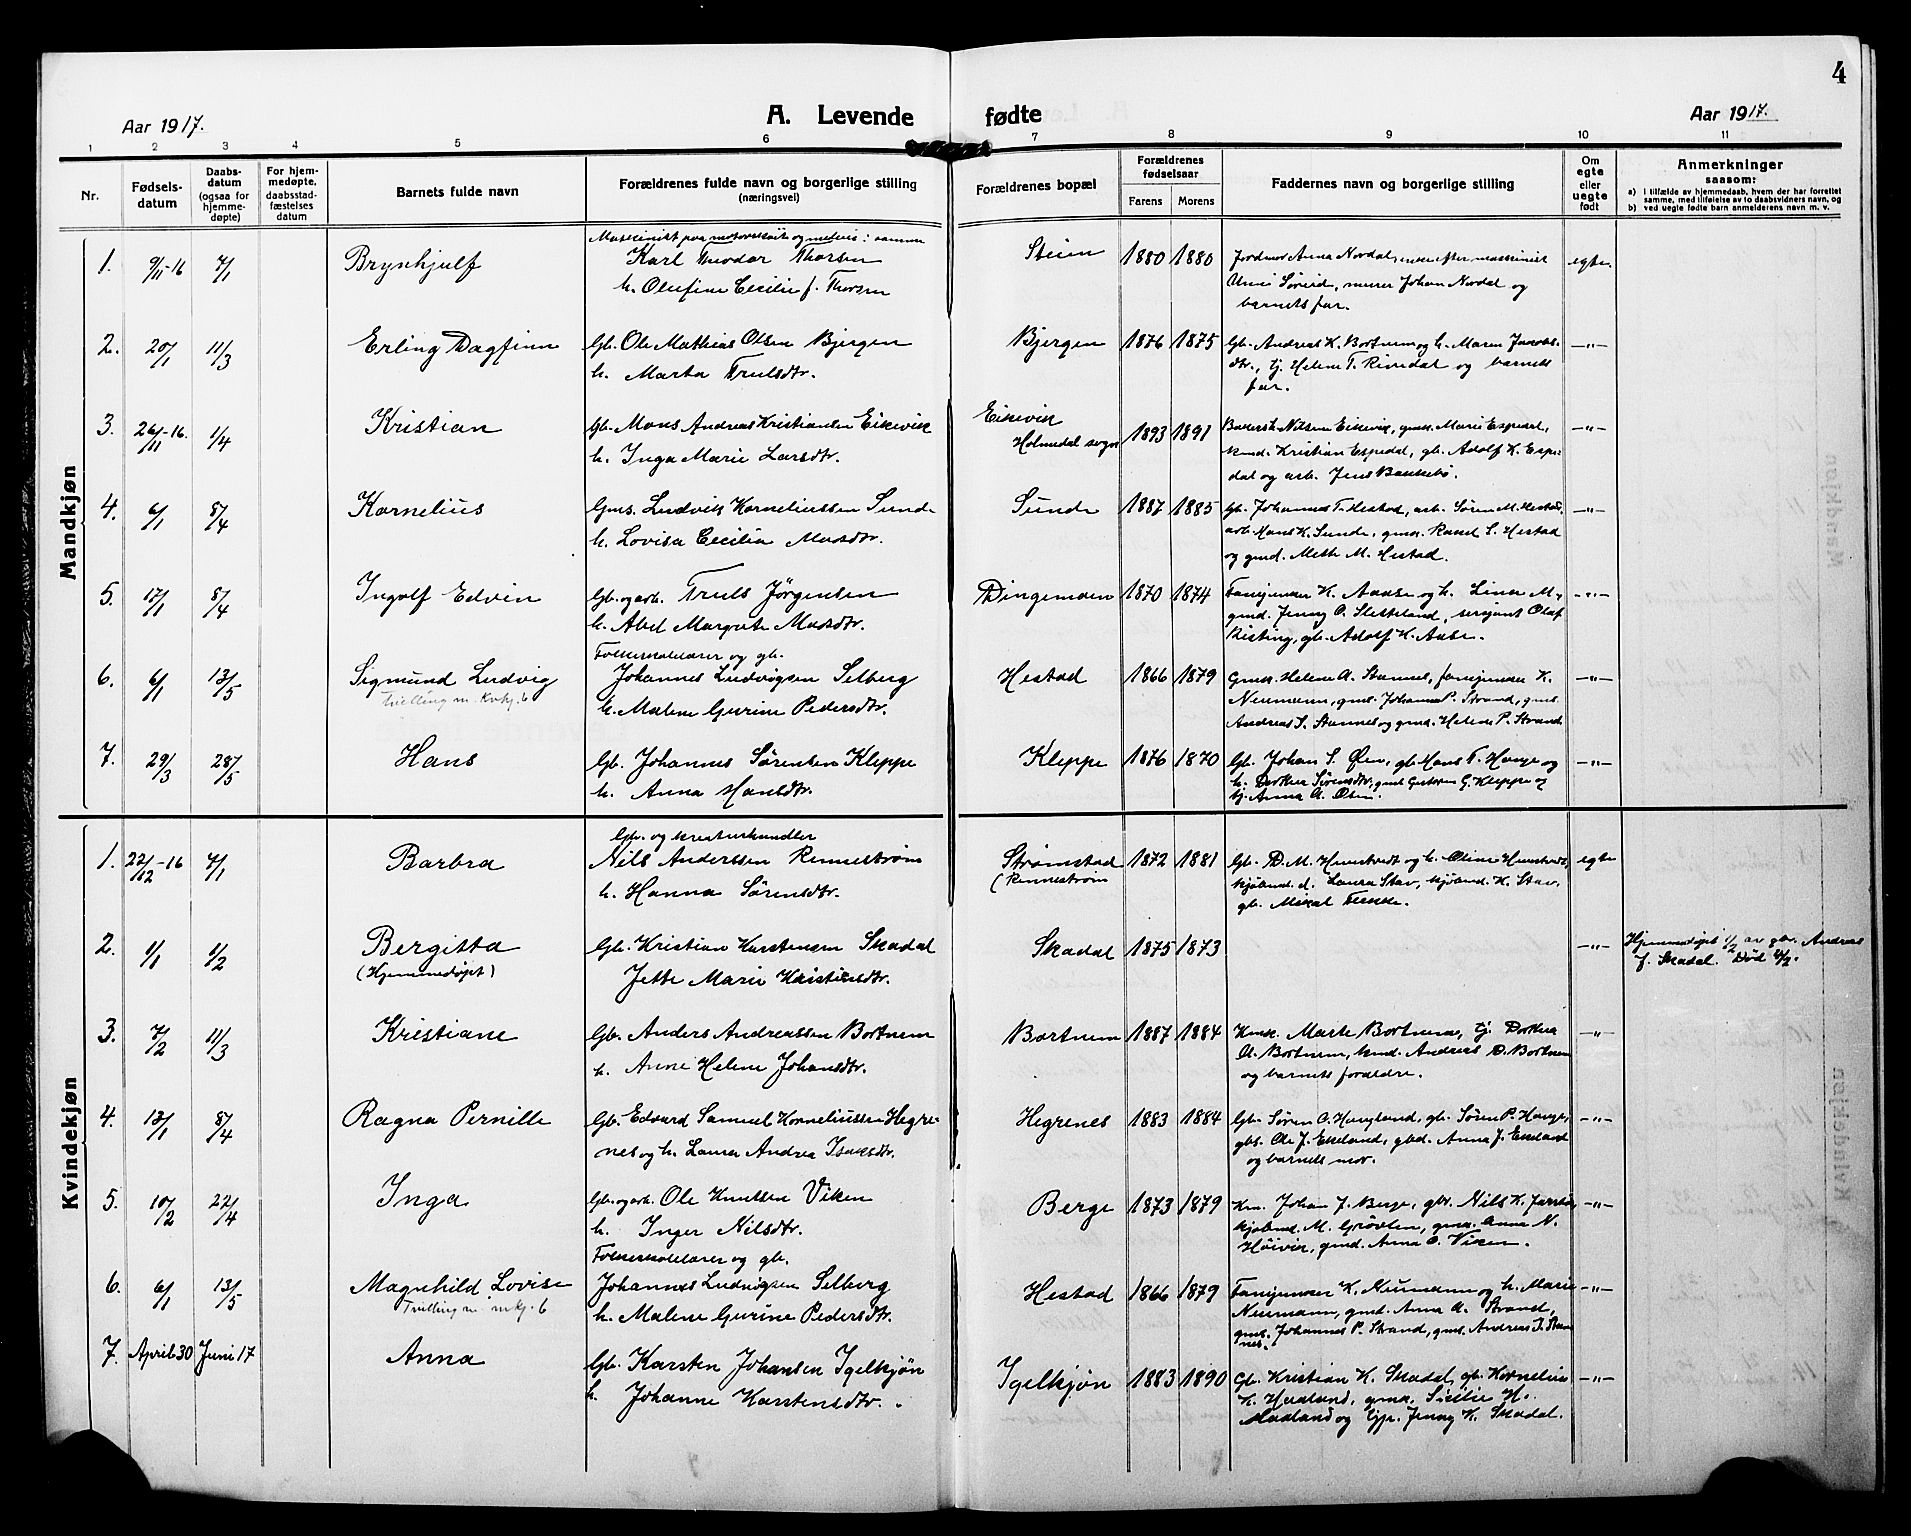 4
A. Levende fødte
Aar 1917.
Aar 1917.
1 2 3 4 5 6 7 8 9 10 11
Nr.
Fødsels-
datum
Daabs-
datum
(ogsaa for
hjemme-
døpte)
For hjem-
medøpte,
daabsstad-
fæstelses
datum
Barnets fulde navn
Forældrenes fulde navn og borgerlige stilling
(næringsvei)
Forældrenes bopæl
Forældrenes
fødselsaar
Farens Morens
Faddernes navn og borgerlige stilling
Om
egte
eller
uegte
født
Anmerkninger
saasom:
a) i tilfælde av hjemmedaab, hvem der har forrettet
samme, med tilføielse av to daabsvidners navn, og
b) ved uegte fødte barn anmelderens navn m. v.
Mandkjøn
1. 9/11-16 7/1 Brynhjulf
Karl Theodor Thorsen
h. Olufine Cecilie f. Thorsen
Steien 1880 1880
Jordmor Anna Nordal, enke efter maskinist
Johan Nordal og
barnets far.
egte
2. 20/1 11/3 Erling Dagfinn
Gb. Ole Mathias Olsen Bjergen
h. Marta Trulsdtr.
Bjergen 1876 1875
Gb. Andreas K. Bortnem og h. Maren Jacobs-
dtr., tj. Helene T. Rivedal og barnets
far.
-"-
3. 26/11-16. 1/4 Kristian
Gb. Mons Andreas Kristiansen Eikevik
h. Inga Marie Larsdtr.
Eikevik
Holmedal sogn 1893 1891
Nilsen Eikevik, gmk. Marie Espedal,
Kristian Espedal, gb. Adolf K. Espe-
dal og arb. Jens
-"-
4. 6/1 8/4 Kornelius
Gms. Ludvik Korneliussen Sunde
h. Lovisa Cecilia Madsdtr.
Sunde 1887 1885
Gb. Johannes T. Hestad, arb. Søren M. Hestad,
arb. Hans K. Sunde, gmk. S. Hestad
og gmd. Meth M. Hestad.
-"-
5. 17/1 8/4 Ingolf Edvin
Gb. og arb. Truls Jørgensen
h. Abel Margrete Madsdtr.
Dingemoen 1870 1874
Fanejunker K. Aasse og h. Lina M.,
gmd. Jenny O. Sletteland, sersjant Olaf
Kisting, gb. Adolf K. Aase.
-"-
6. 6/1 13/5 Sigmund Ludvig
Tvilling m. kvkj. 6
Folkeskolelærer og gb.
Johannes Ludvigsen Selberg
h. Malene Gurine Pedersdtr.
Hestad 1866 1879
Gmk. Helene A. Stannes, fanejunker K.
Neumann, gms. Johannes P. Strand, gms.
Andreas I. Stannes og gmd. Helene P. Strand
-"-
7. 29/3 28/5 Hans
Gb. Johannes Sørensen Kleppe
h. Anna Hansdtr.
Kleppe 1876 1870
Gb. Johan S. Øen, gb. Hans T. Hauge og
h. Dorthea Sørensdtr., gms. G. Kleppe og
tj. Anna A. Øen.
-"-
Kvindekjøn
1. 22/12-16 7/1 Barbra
Gb. og kreaturhandler
Nils Anderssen Rennestrøm
h. Hanna Sørensdtr.
Strømstad
(Rennestrøm 1872 1881
Gb. D. M. Hunstredt og h. Oline Hunstredt,
kjøbmd. d. Laura Stav, kjøbmd. K. Stav,
gb. Mikal
egte
2. 1/1 1/2 Bergitta
(Hjemmedøpt)
Gb. Kristian Karstensen Skadal
Jette Marie Kristensdtr.
Skadal 1875 1873
-"-
Hjemmedøpt 1/2 av gbr. Andreas
J. Skadal. Død 4/2.
3. 7/2 11/3 Kristiane
Gb. Anders Andreassen Bortnem
h. Anne Helene Johansdtr.
Bortnem 1887 1884
Kmk. Marte Bortnem, tj. Dorthea
A. Bortnem, kmd. Andreas D. Bortnem
og barnets foreldre.
-"-
4. 13/1 8/4 Ragna Pernille
Gb. Edvard Samuel Korneliussen Hegre-
nes og h. Laura Andrea Isaksdtr.
Hegrenes 1883 1884
Gb. Søren O. Haugland, gb. Søren P. Hauge,
gbs. Ole J. Eseland, gbd. Anna J. Eseland
og barnets mor.
-"-
5. 10/2 22/4 Inga
Gb. og arb. Ole Knutsen Viken
h. Inger Nilsdtr.
Berge 1873 1879
Km. Johan J. Berge, gbr. Nils K.
kjøbmd. M. Grøvlen, gmk. Anna N.
Høivik, gmd. Anna O. Viken.
-"-
6. 6/1 13/5 Magnhild Lovise
Tvilling m. mkj. 6
Folkeskolelærer og gb.
Johannes Ludvigsen Selberg
h. Malene Gurine Pedersdtr.
Hestad 1866 1879
Fanejunker K. Neumann og h. Marie
Neumann, gmd. Anna A. Strand,
gms. Johannes P. Strand, gms. Andreas I. Stan-
nes.
-"-
7. April 30 Juni 17 Anna
Gb. Karsten Johansen Igelkjøn
h. Johanne Karstensdtr.
Igelkjøn 1883 1890
Gb. Kristian K. Skadal, gb. Kornelius
K. Haaland, gmk. Sicilie H.
Haaland og Jenny K. Skadal.
-"-